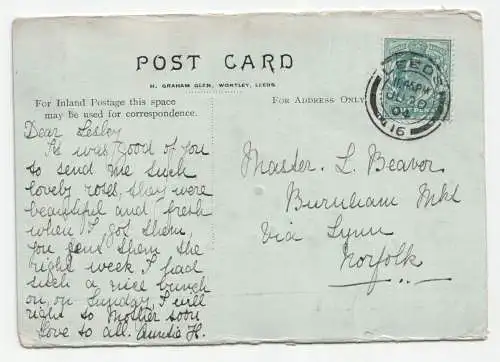 POST CARD
H. GRAHAM GLEN, WORTLEY, LEEDS.
For Inland Postage this space
may be used for correspondence.
For Address Only
LEEDS
JL 20
04
16
Dear Lesley
It was good of you
to send me such
lovely roses, they were
beautiful and fresh
when I got them,
you sent them the
right week, I had
such a nice bunch
on, on Sunday, I will
right to Mother soon
love to all. Auntie H.
Master. L. Beavor
Burnham Mkt
Via Lynn
Norfolk